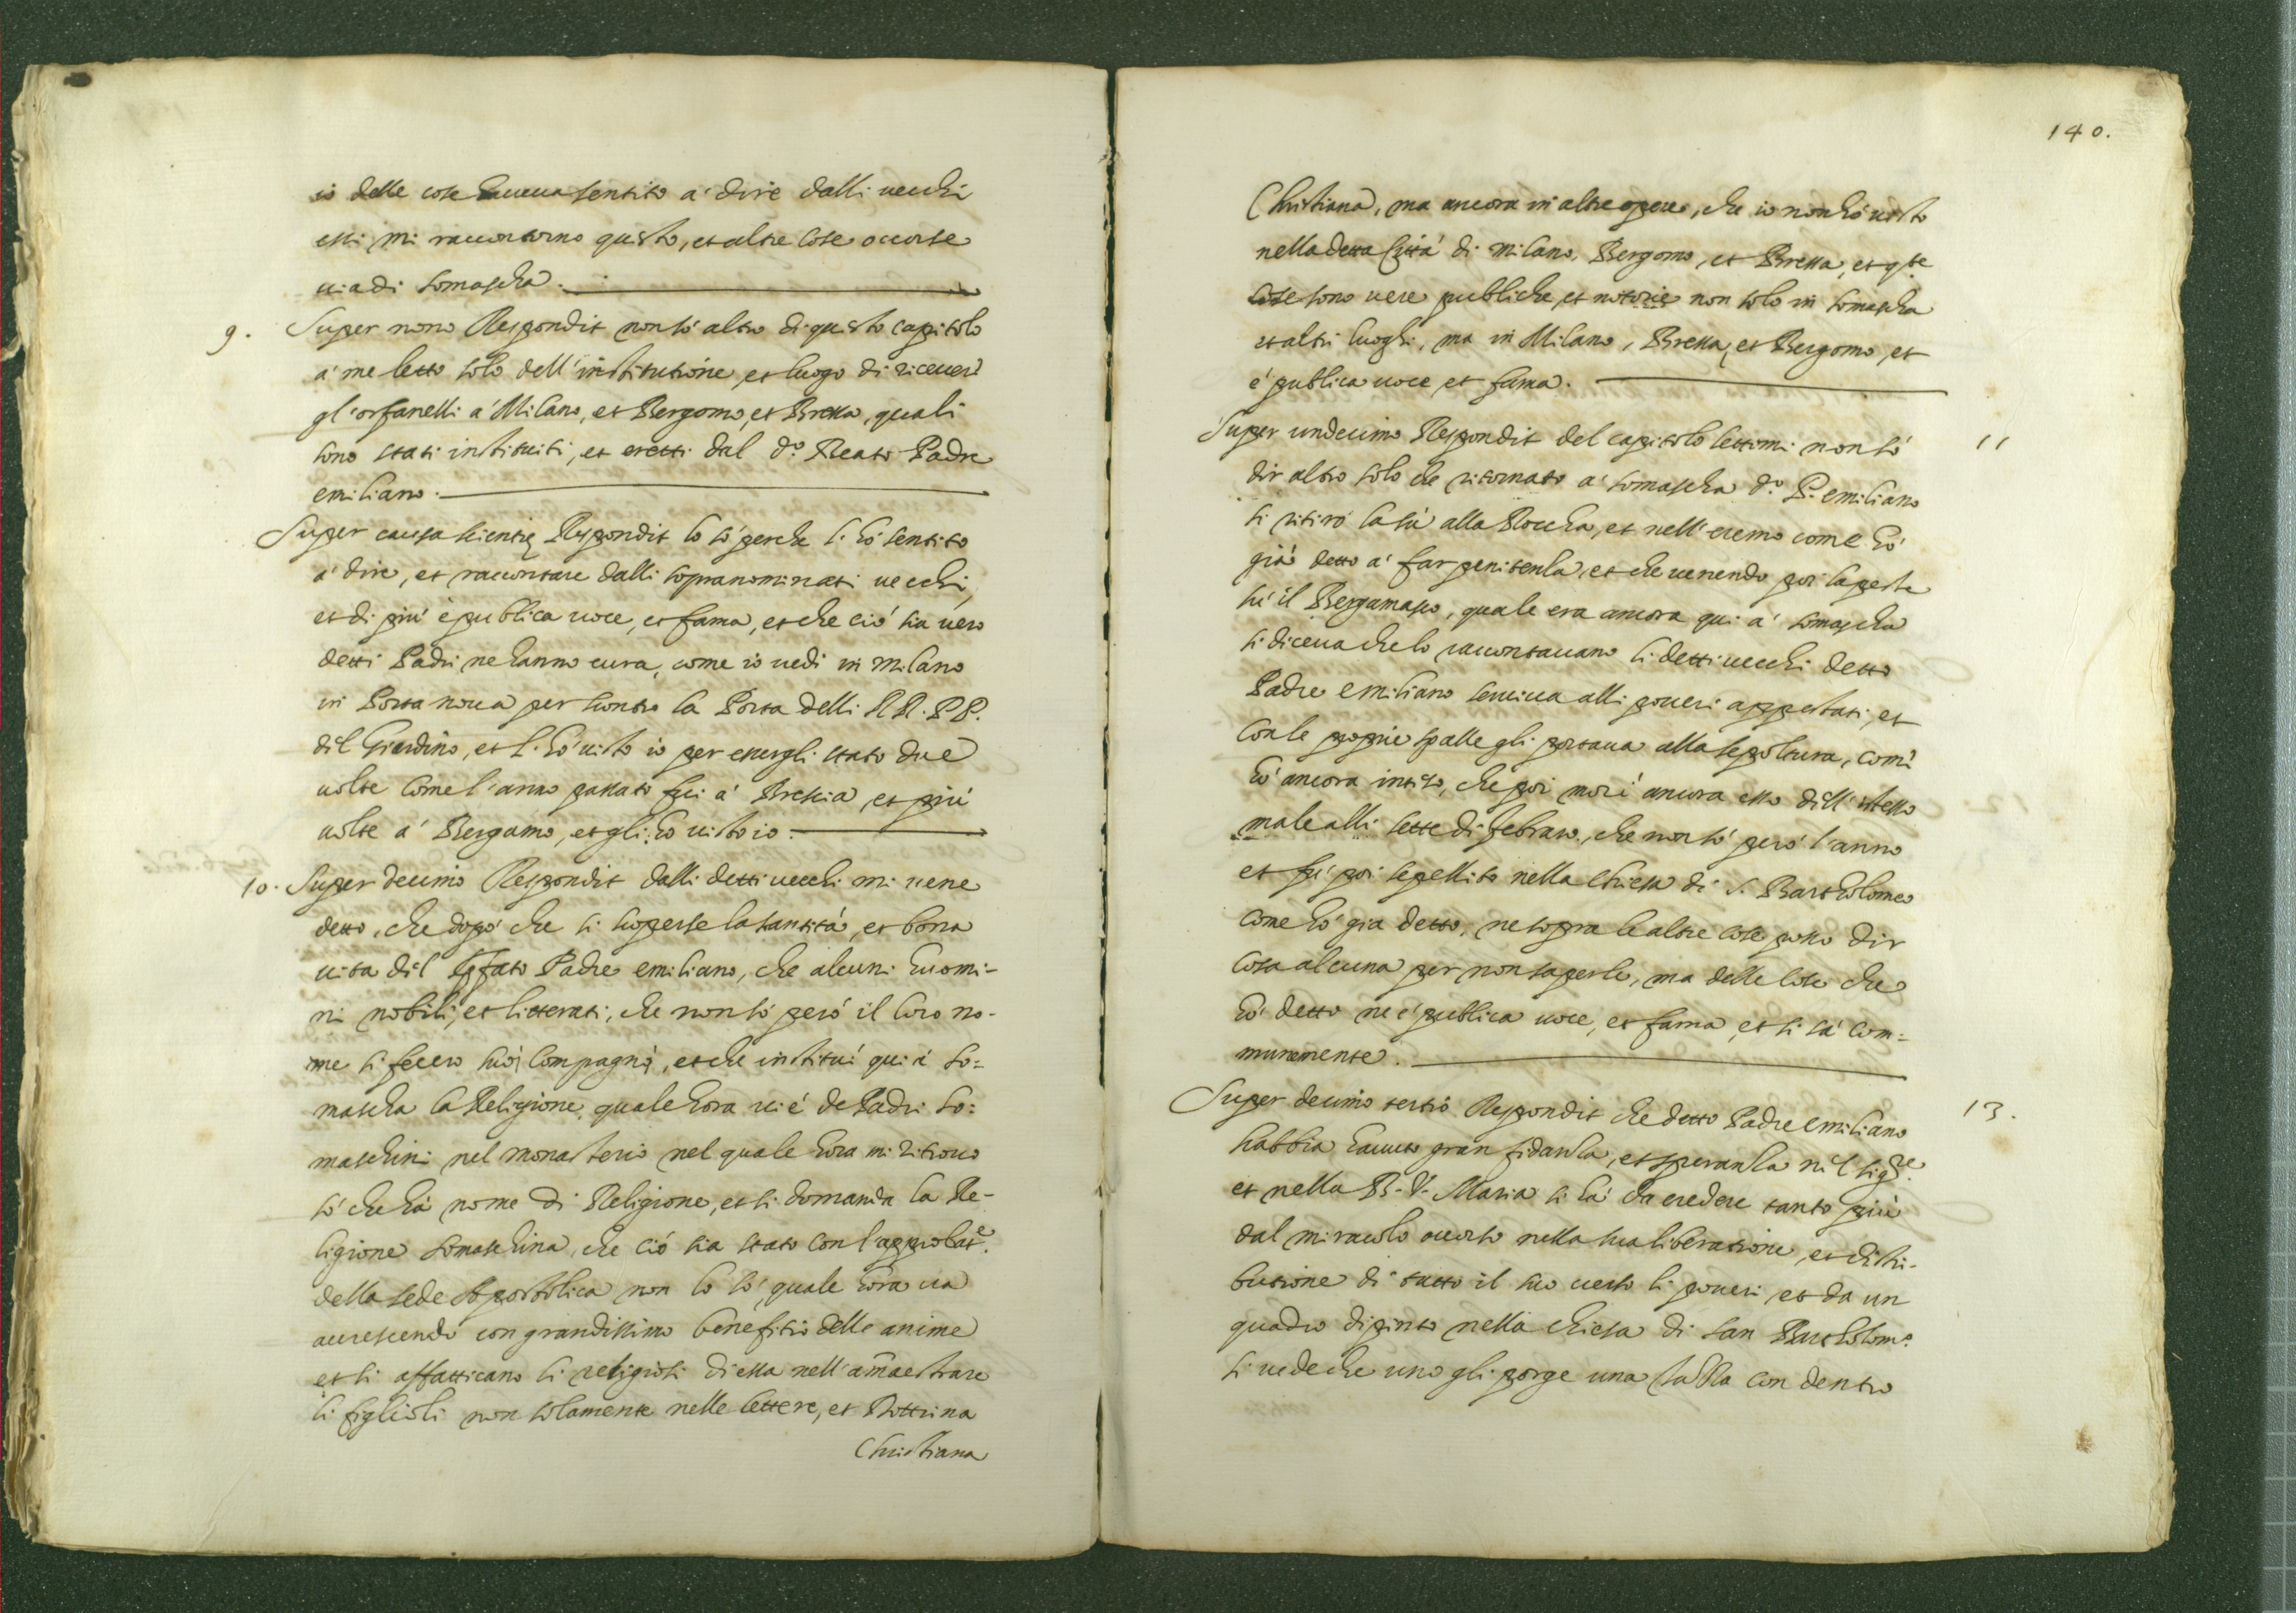 io delle cose haueua sentito a' dire dalli uecchi
essi mi raccontorno questo, et altre cose occorse
uia di somascha.
9. Super nono Respondit non só altro di questo capitolo
a' me letto solo dell'institutione, et luogo di riceuer
gl'orfanelli a' Milano, et Bergomo, et Bressa, quali
sono stati instituiti, et eretti dal d.º Beato Padre
emiliano.
Super causa scientię Respondit lo só perche l'hó sentito
a' dire, et raccontare dalli sopranominati uecchi,
et di piú è publica uoce, et fama, et che ció sia uero
detti Padri ne hanno cura, come io uedi in Milano
in Porta noua per scontro la Porta delli RR. PP.
dil Giardino, et l'hó uisto io per essergli stato due
uolte come l'anno passato fui a' Brescia, et piú
uolte a' Bergamo, et gli hó uisto io.
10. Super decimo Respondit dalli detti uecchi mi uene
detto, che dopó che si scoperse la santitá, et bona
uita dil Padre emiliano, che alcuni huomi-
ni nobili, et litterati, che non só peró il loro no-
me si fecero suoi compagni, et che instituí qui á so=
mascha la Religione, quale hora ui é de Padri so=
maschini nel monasterio nel quale hora mi ritrouo
só che há nome di Religione, et si domanda la Re-
ligione somaschina, che ció sia stato con l'approbat.e
della sede Apostolica non lo só, quale hora ua
accrescendo con grandissimo benefitio delle anime
et si affatticano li religiosi di essa nell'am̃aestrare
li figlioli non solamente nelle lettere, et Dottrina
Christiana
140.
Christiana, ma ancora in altre opere, che io non hó uisto
nella detta Cittá di Milano, Bergomo, et Bressa, et q.te
cose sono uere publiche, et notorie non solo in somascha
et altri luoghi, ma in Milano, Bressa, et Bergomo, et
é publica uoce et fama.
Super undecimo Respondit del capitolo lettomi non só 11
dir altro solo che ritornato a' somascha d.º P. emiliano
si ritiró la sú alla Roccha, et nell'eremo come hó
giá detto a' far penitenza, et che uenendo poi la peste
sú il Bergamasco, quale era ancora qui a' somascha
si diceua che lo raccontauano li detti uecchi detto
Padre emiliano seruiua alli poueri appestati, et
con le proprie spalle gli portaua alla sepoltura, com'
hó ancora inteso, che poi morí ancora esso dell'istesso
male alli sette di febraro, che non só peró l'anno
et fú poi sepellito nella chiesa di S. Bartholomeo
come hó gia detto, ne sopra le altre cose posso dir
cosa alcuna per non saperle, ma delle cose che
hó detto ne é publica uoce, et fama, et si sá com=
munemente.
Super decimo tertio Respondit che detto Padre emiliano 13.
habbia hauuto gran fidanza, et speranza nel sig.re
et nella B. V. Maria si há da credere tanto piú
dal miracolo occorso nella sua liberatione, et distri-
butione di tutto il suo uerso li poueri, et da un
quadro dipinto nella chiesa di san Bartholom.º
si uede che uno gli porge una con dentro